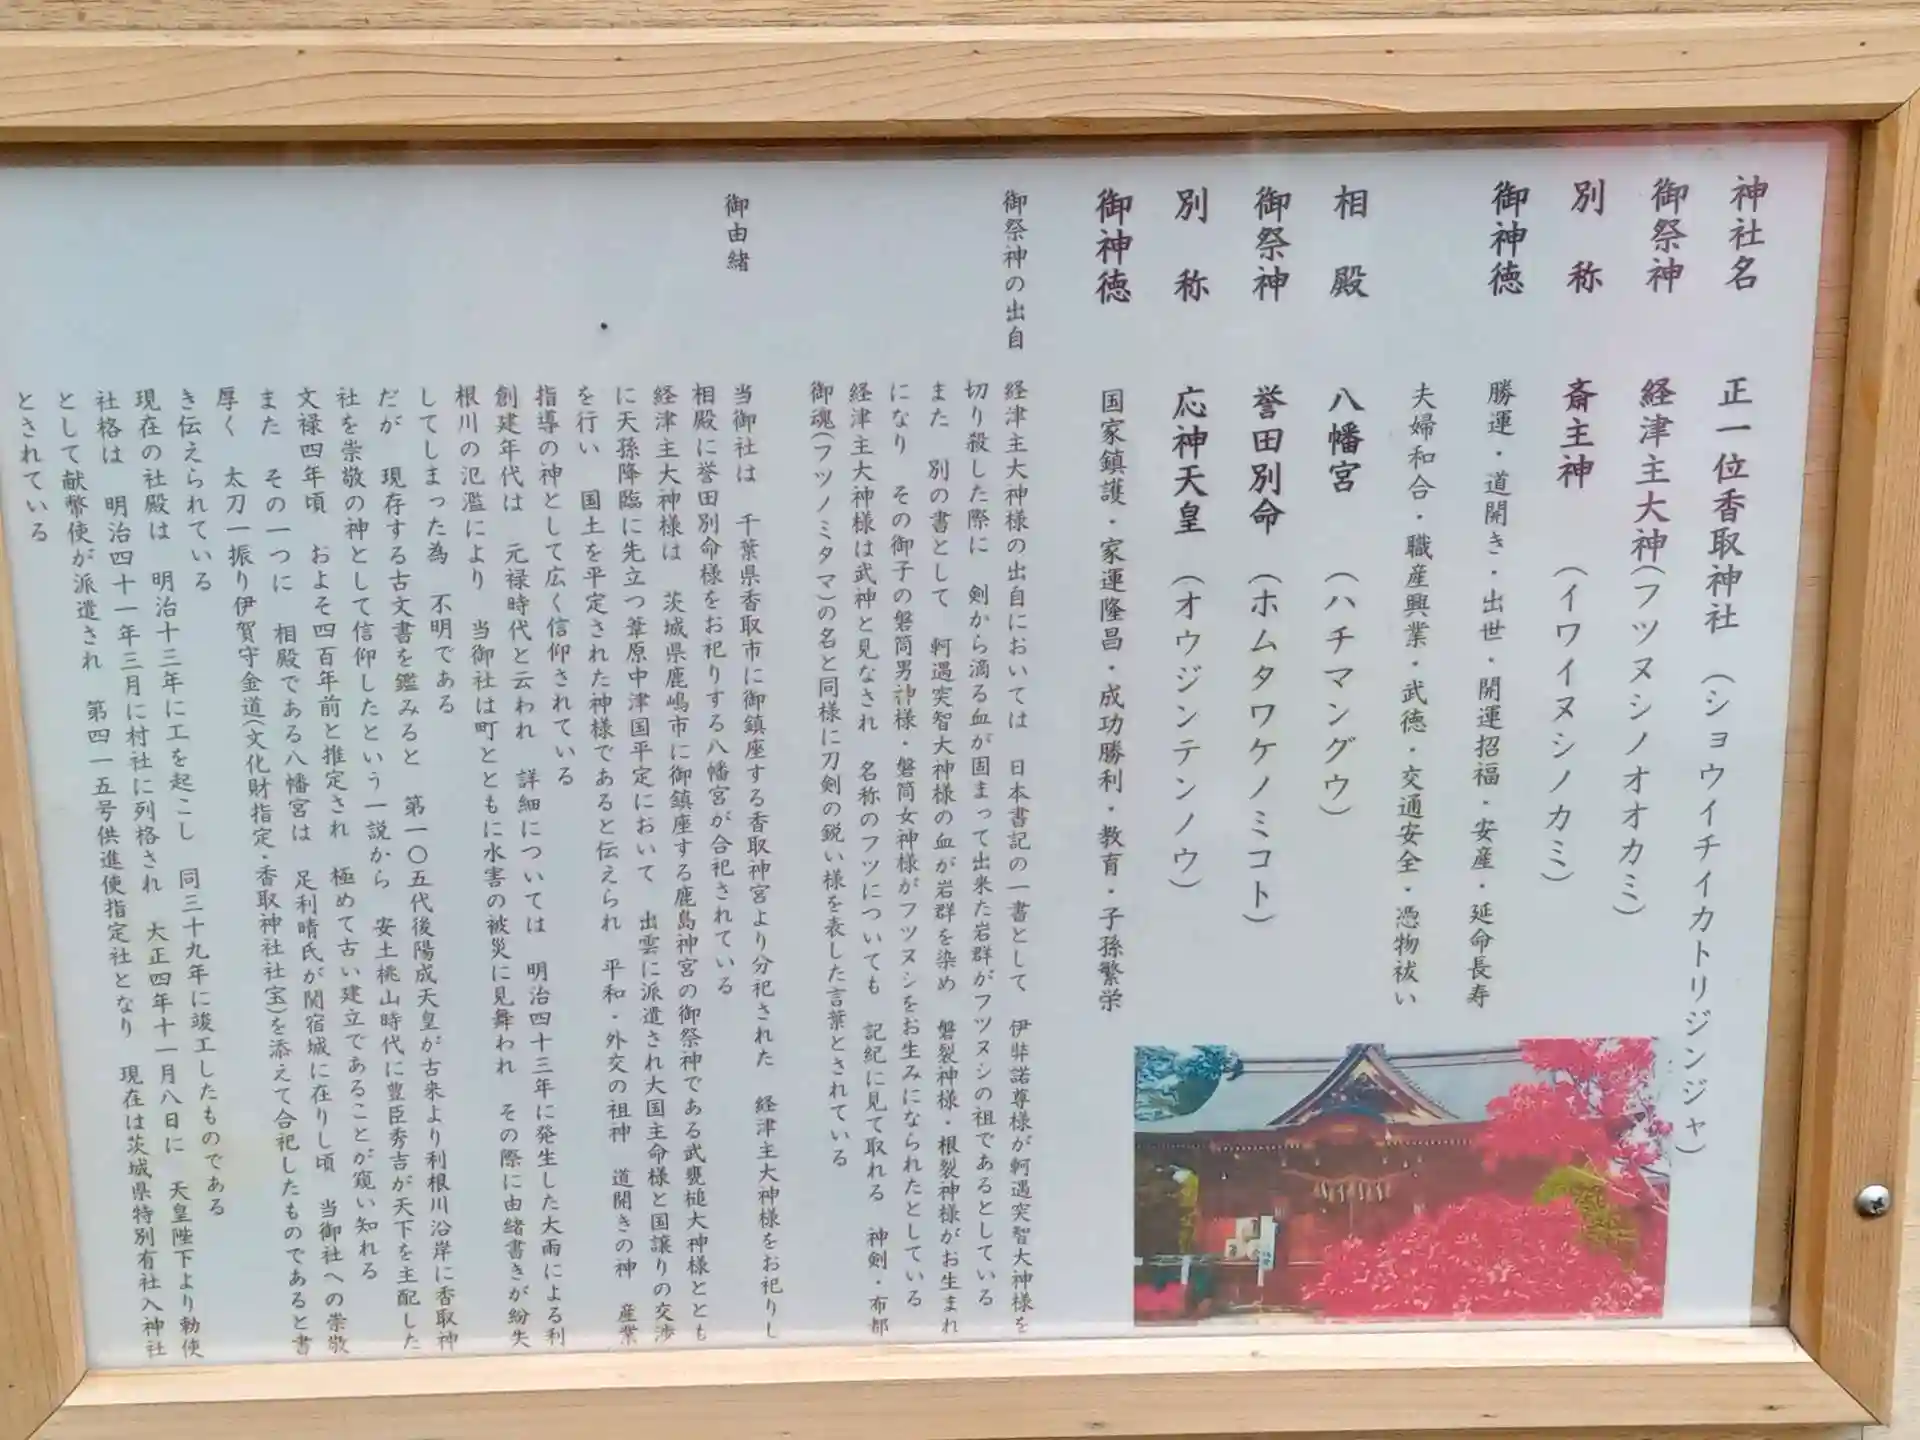 神社名　正一位香取神社　（ショウイチイカトリジンジャ）
御祭神　経津主大神（フツヌシノオオカミ）
別　称　斎主神　（イワイヌシノカミ）
御神徳　勝運・道開き・出世・開運招福・安産・延命長寿
夫婦和合・職産興業・武徳・交通安全・憑物祓い
相　殿　八幡宮　（ハチマングウ）
御祭神　誉田別命　（ホムタワケノミコト）
別　称　応神天皇　（オウジンテンノウ）
御神徳　国家鎮護・家運隆昌・成功勝利・教育・子孫繁栄
御祭神の出自　経津主大神様の出自においては　日本書記の一書として　伊弉諾尊様が軻遇突智大神様を
切り殺した際に　剣から滴る血が固まって出来た岩群がフツヌシの祖であるとしている
また　別の書として　軻遇突智大神様の血が岩群を染め　磐裂神様・根裂神様がお生まれ
になり　その御子の磐筒男神様・磐筒女神様がフツヌシをお生みになられたとしている
経津主大神様は武神と見なされ　名称のフツについても　記紀に見て取れる　神剣・布都
御魂（フツノミタマ）の名と同様に刀剣の鋭い様を表した言葉とされている
御由緒　当御社は　千葉県香取市に御鎮座する香取神宮より分祀された　経津主大神様をお祀りし
相殿に誉田別命様をお祀りする八幡宮が合祀されている
経津主大神様は　茨城県鹿嶋市に御鎮座する鹿島神宮の御祭神である武甕槌大神様ととも
に天孫降臨に先立つ葦原中津国平定において　出雲に派遣され大国主命様と国譲りの交渉
を行い　国土を平定された神様であると伝えられ　平和・外交の祖神　道開きの神　産業
指導の神として広く信仰されている
創建年代は　元禄時代と云われ　詳細については　明治四十三年に発生した大雨による利
根川の氾濫により　当御社は町とともに水害の被災に見舞われ　その際に由緒書きが紛失
してしまった為　不明である
だが　現存する古文書を鑑みると　第一〇五代後陽成天皇が古来より利根川沿岸に香取神
社を崇敬の神として信仰したという一説から　安土桃山時代に豊臣秀吉が天下を主配した
文禄四年頃　およそ四百年前と推定され　極めて古い建立であることが窺い知れる
また　その一つに　相殿である八幡宮は　足利晴氏が関宿城に在りし頃　当御社への崇敬
厚く　太刀一振り伊賀守金道（文化財指定・香取神社社宝）を添えて合祀したものであると書
き伝えられている
現在の社殿は　明治十三年に工を起こし　同三十九年に竣工したものである
社格は　明治四十一年三月に村社に列格され　大正四年十一月八日に　天皇陛下より勅使
として献幣使が派遣され　第四一五号供進使指定社となり　現在は茨城県特別有社入神社
とされている